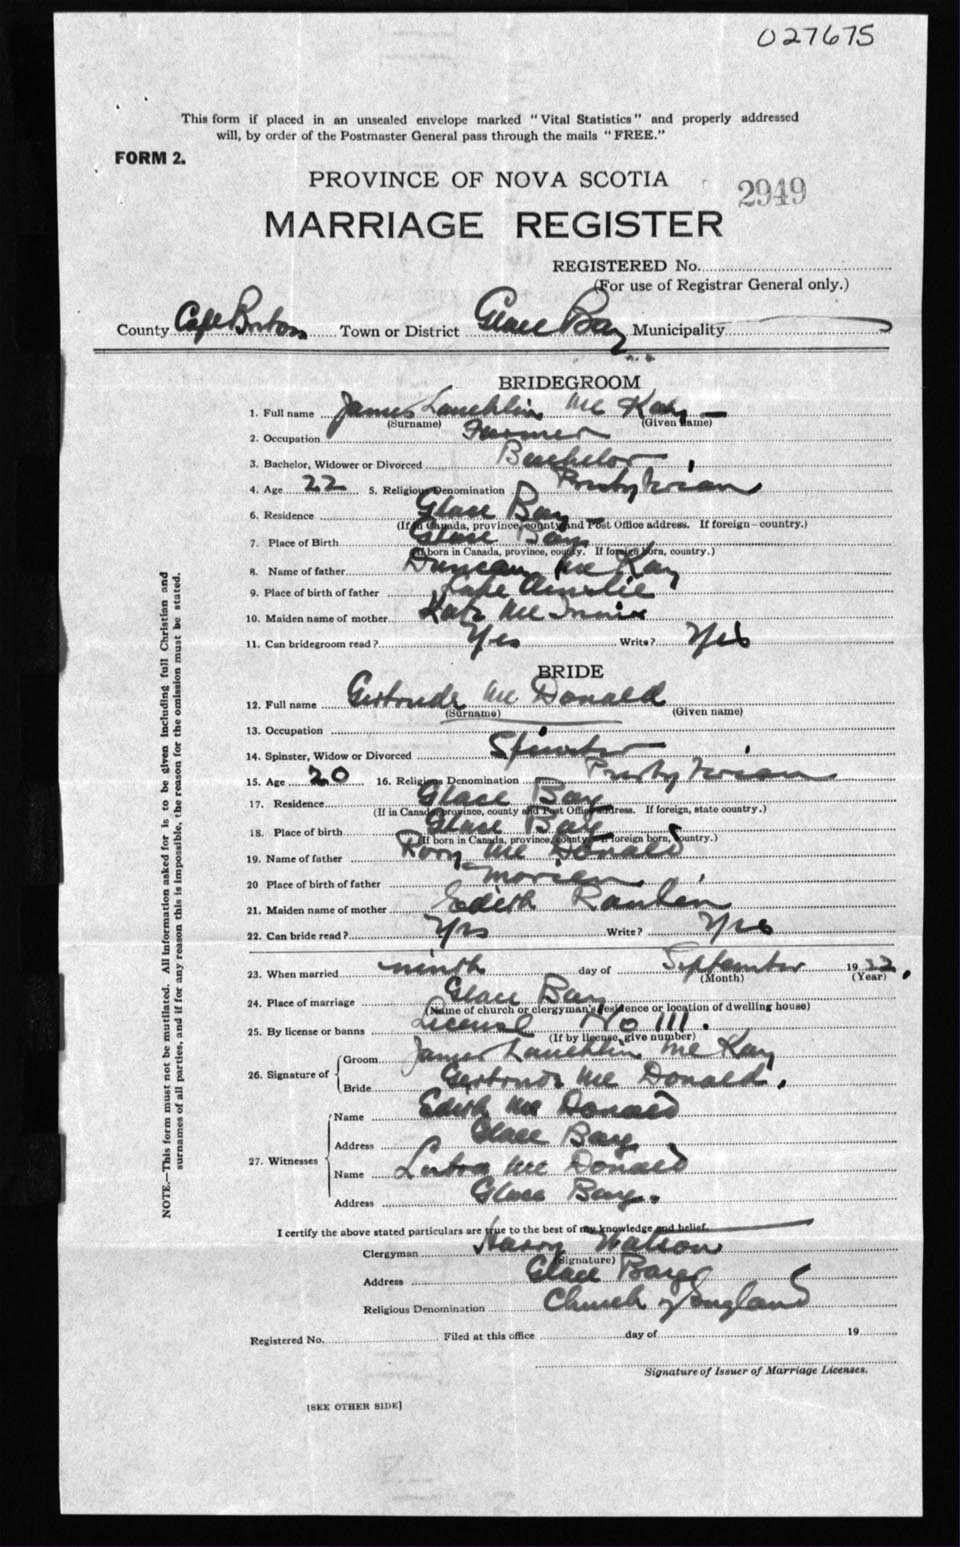 027675
This form if placed in an unsealed envelope marked "Vital Statistics" and properly addressed
will, by order of the Postmaster General pass through the mails "FREE."
FORM 2.
PROVINCE OF NOVA SCOTIA
2949
MARRIAGE REGISTER
REGISTERED No.
(For use of Registrar General only.)
County Cape Breton Town or District Glace Bay Municipality
BRIDEGROOM
1. Full name James Lauchlin Mc Kay
(Surname) (Given name)
2. Occupation Farmer
3. Bachelor, Widower or Divorced Bachelor
4. Age 22 5. Religious Denomination Presbyterian
6. Residence Glace Bay
(If in Canada, province, county and Post Office address. If foreign—country.)
7. Place of Birth Glace Bay
(If born in Canada, province, county. If foreign born, country.)
8. Name of father Duncan Mc Kay
9. Place of birth of father Lake Ainslie
10. Maiden name of mother Kate Mc Innis
11. Can bridegroom read? Yes Write? Yes
BRIDE
12. Full name Gertrude Mc Donald
(Surname) (Given name)
13. Occupation
14. Spinster, Widow or Divorced Spinster
15. Age 20 16. Religious Denomination Presbyterian
17. Residence Glace Bay
(If in Canada province, county and Post Office address. If foreign, state country.)
18. Place of birth Glace Bay
(If born in Canada, province, county. If foreign born, country.)
19. Name of father Rory Mc Donald
20 Place of birth of father Morien
21. Maiden name of mother Edith
22. Can bride read? Yes Write? Yes
23. When married ninth day of September 19
(Month) (Year)
24. Place of marriage Glace Bay
(Name of church or clergyman's residence or location of dwelling house)
25. By license or banns License No 111.
(If by license, give number)
26. Signature of Groom James Lauchlin Mc Kay
Bride Gertrude Mc Donald.
27. Witnesses Name Edith Mc Donald
Address Glace Bay
Name Mc Donald
Address Glace Bay.
I certify the above stated particulars are true to the best of my knowledge and belief.
Clergyman Harry Watson
(Signature)
Address Glace Bay
Religious Denomination Church of England
Registered No. Filed at this office day of 19
Signature of Issuer of Marriage Licenses.
[SEE OTHER SIDE]
NOTE.—This form must not be mutilated. All information asked for is to be given including full Christian and
surnames of all parties, and if for any reason this is impossible, the reason for the omission must be stated.